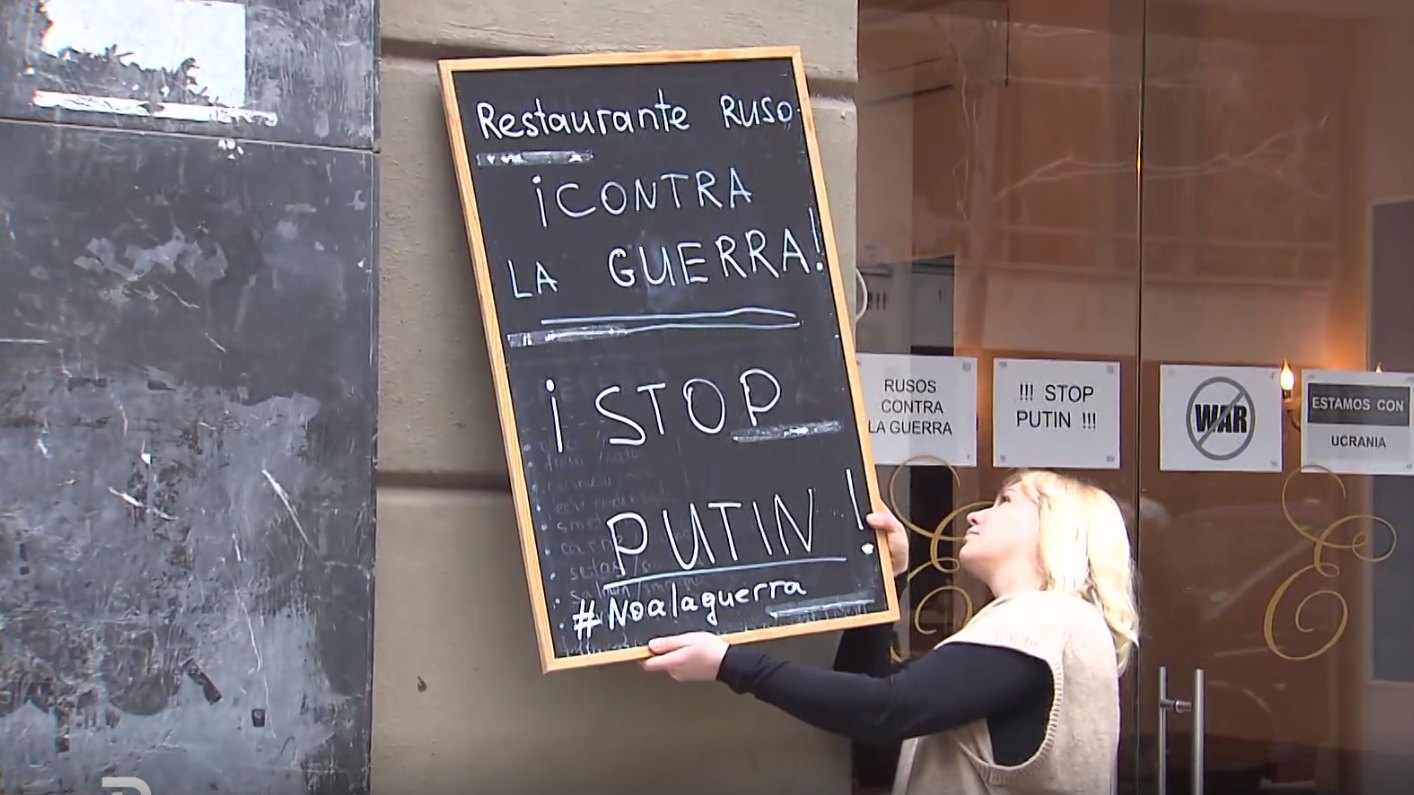 Restaurante Ruso
¡CONTRA
LA GUERRA!
¡STOP
PUTIN!
#Noalaguerra
RUSOS
CONTRA
LA GUERRA
!!! STOP
PUTIN !!!
WAR
ESTAMOS CON
UCRANIA